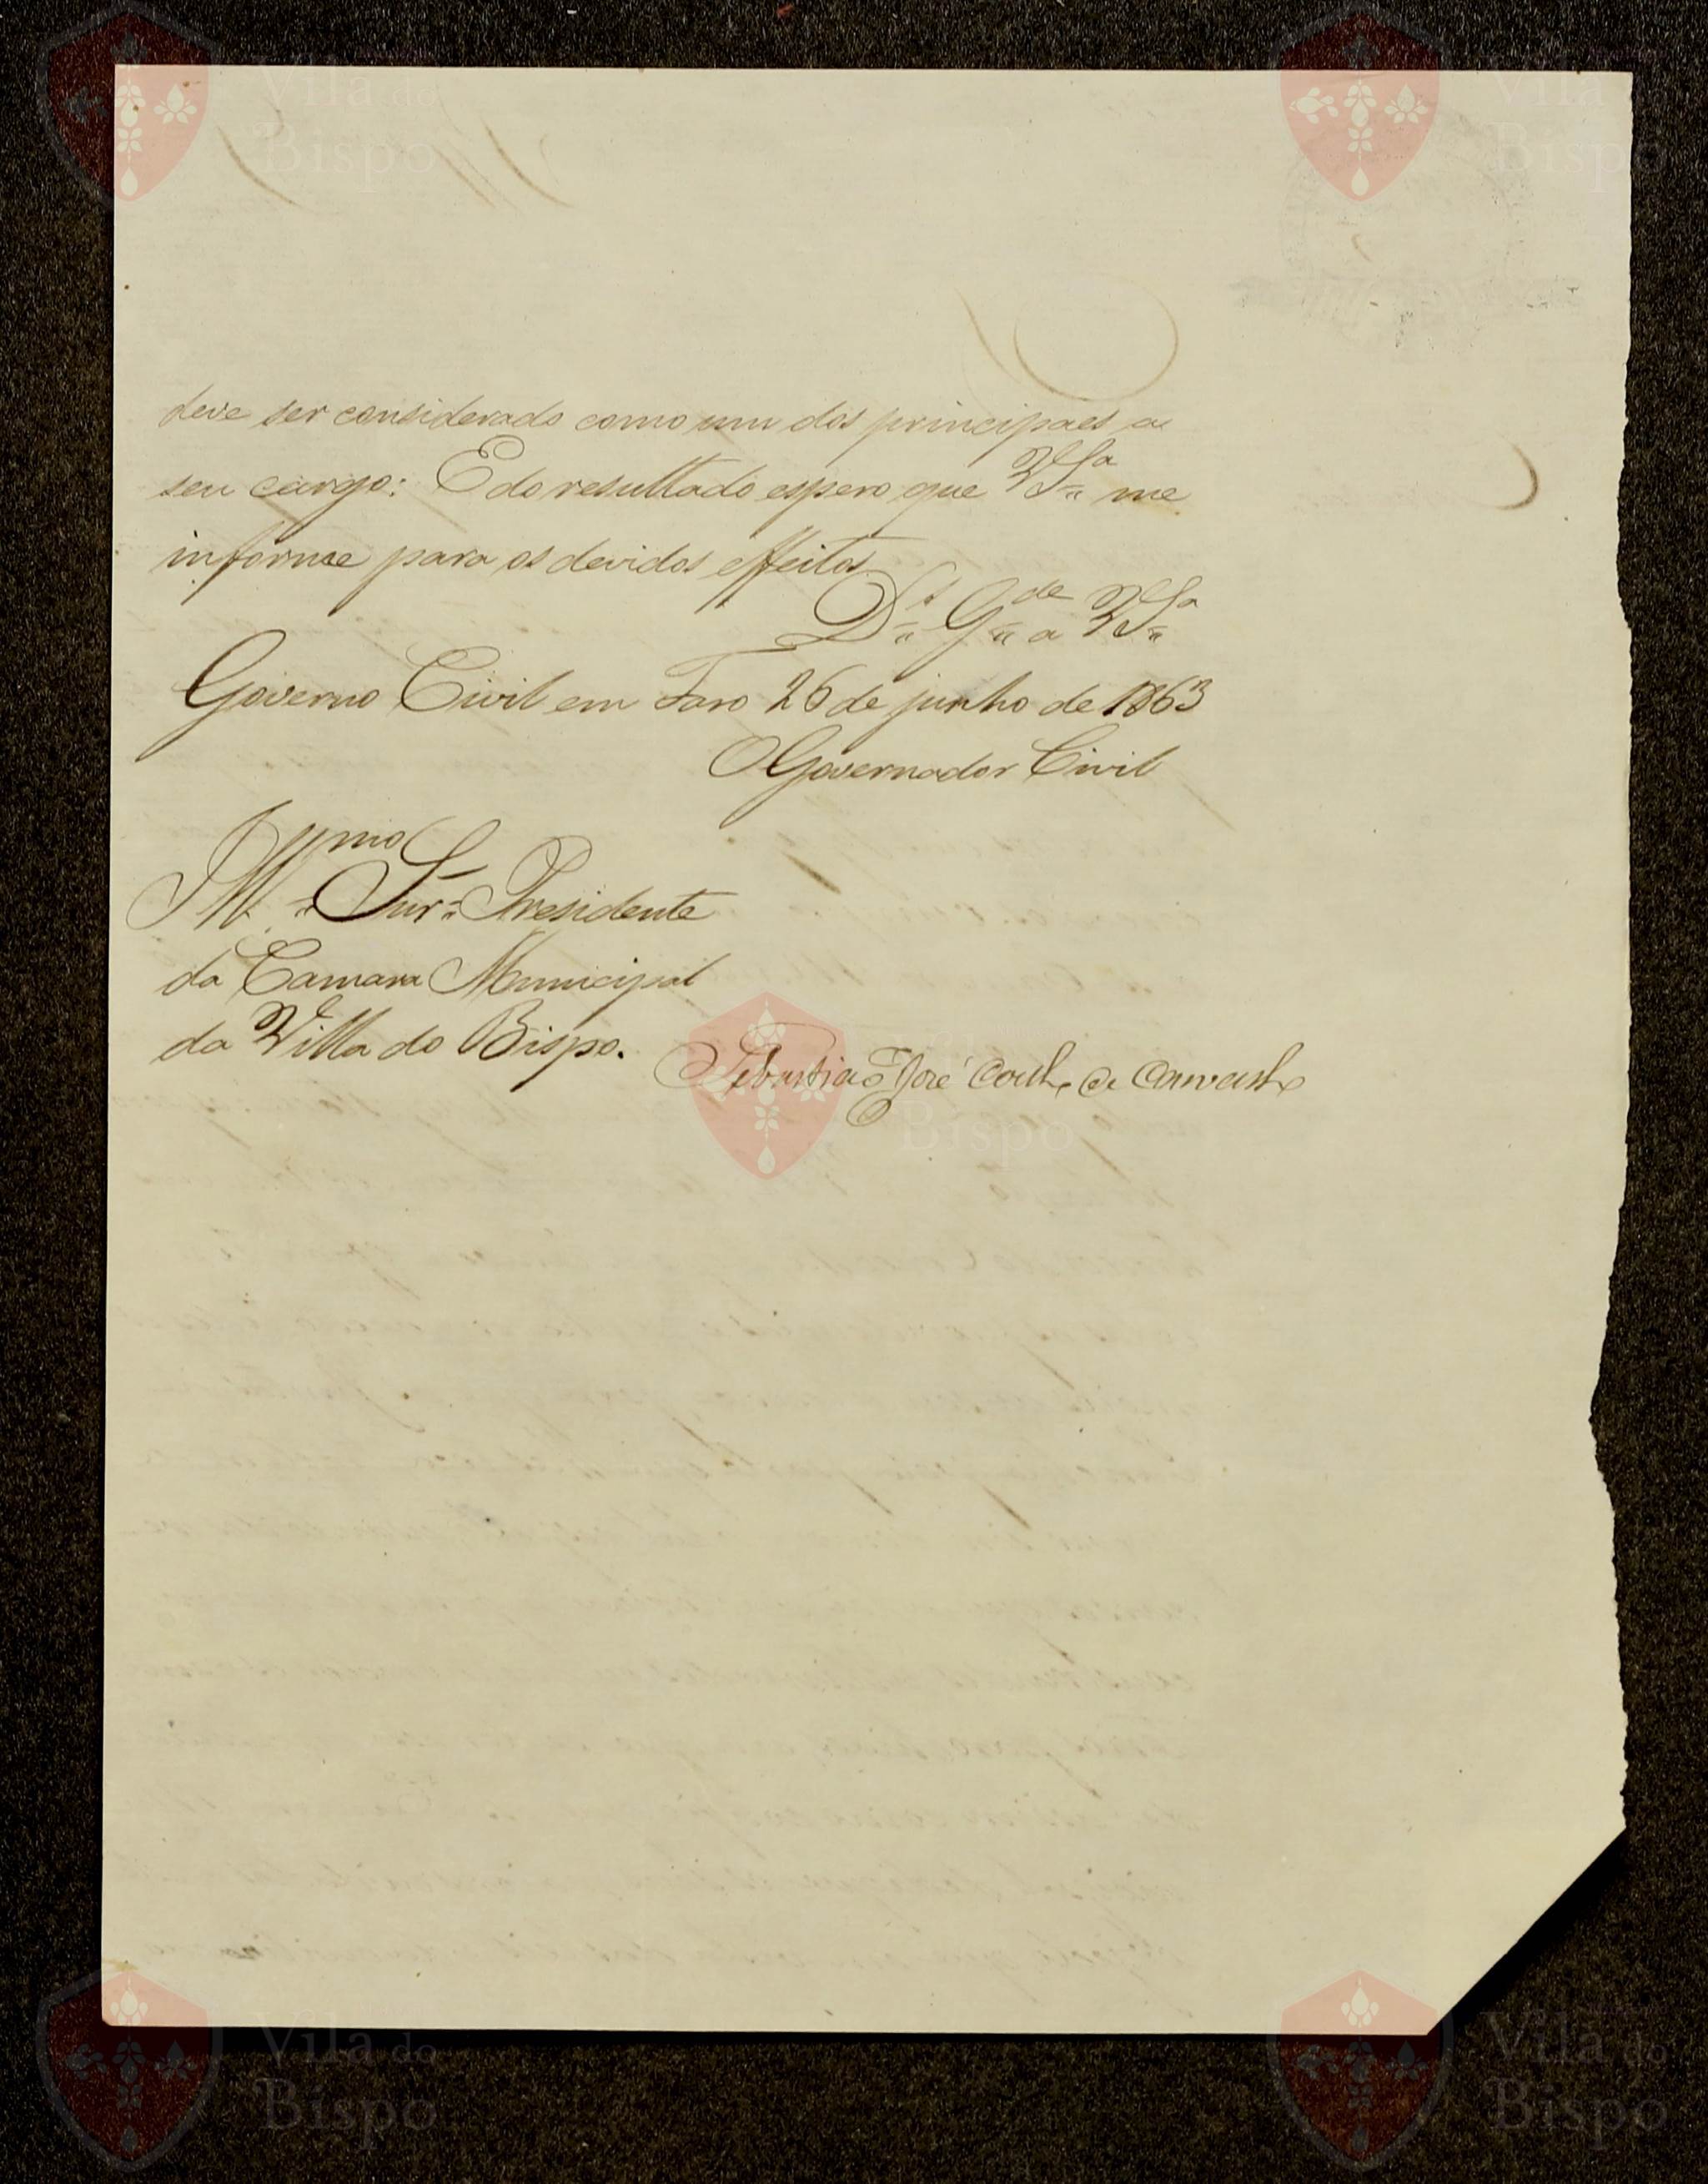 deve ser considerado como um dos principaes a
seu cargo: E do resultado espero que V.S.ª me
informe para os devidos effeitos.
D.s G.de a V.S.ª
Governo Civil em Faro 26 de junho de 1863
O Governador Civil
Ill.mo Snr. Presidente
da Camara Municipal
da Villa do Bispo.
Sebastião José Coelho de Carvalho
Vila do
Bispo
Vila
Bispo
Bispo
Vila do
Bispo
Vila do
Bispo